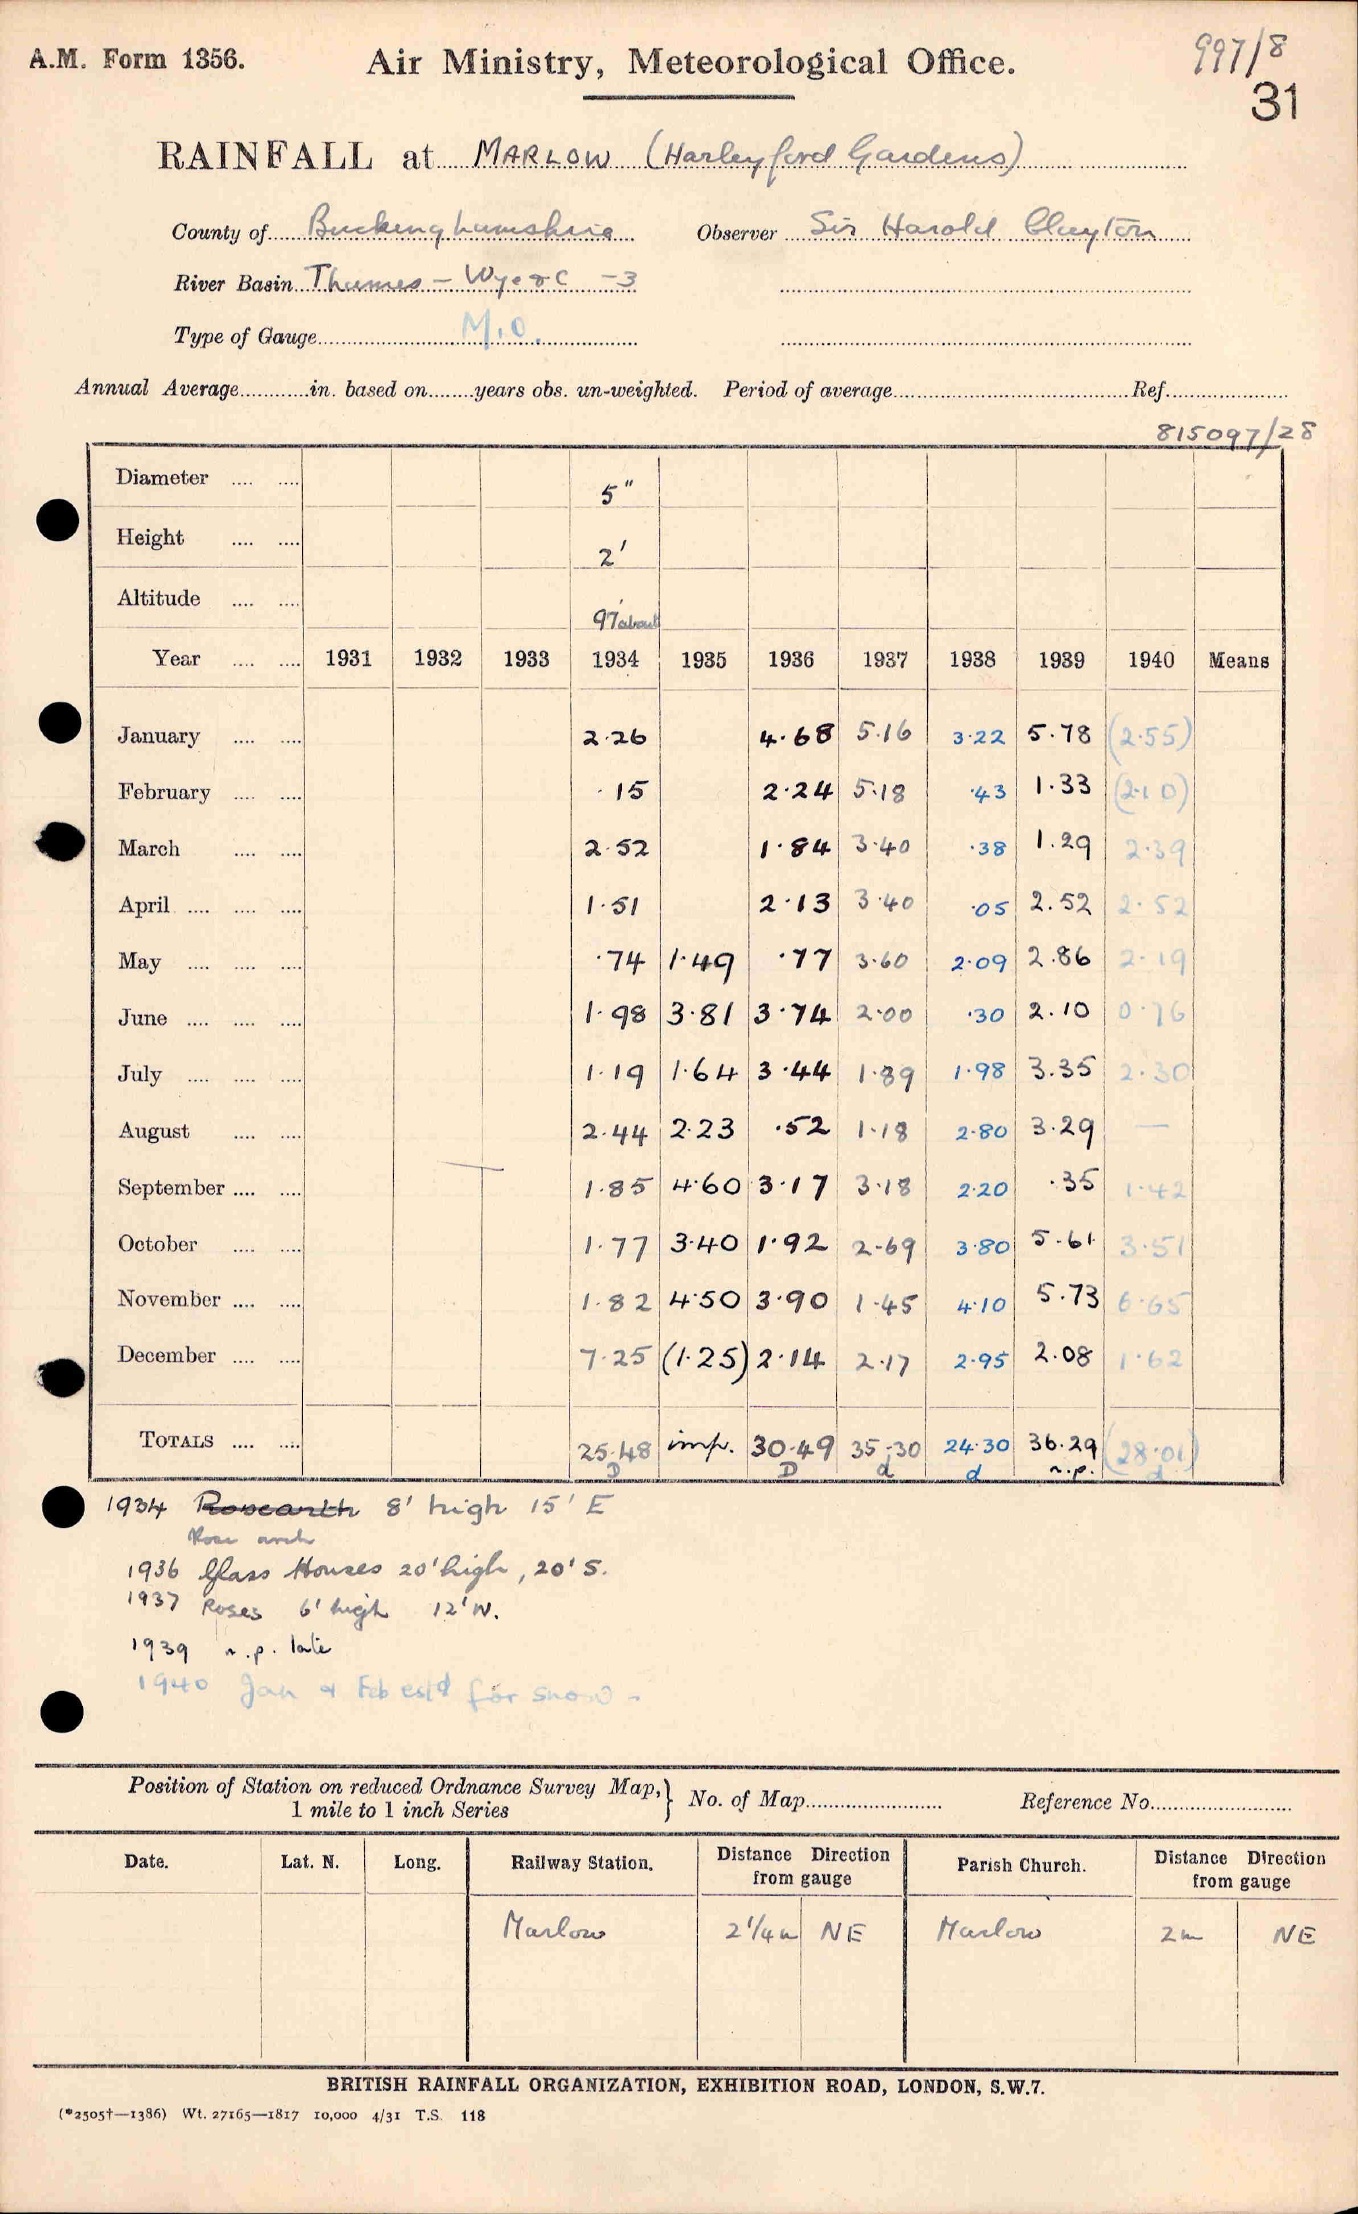 A.M. Form 1356. Air Ministry, Meteorological Office. 997/8
31
RAINFALL at MARLOW (Harleyford Gardens)
County of Buckinghamshire Observer Sir Harold Clayton
River Basin Thames – Wye &c –3
Type of Gauge M.O.
Annual Average............in. based on........years obs. un-weighted. Period of average............Ref............
815097/28
Diameter .... .... 5"
Height .... .... 2'
Altitude .... .... 97' about
Year .... .... 1931 1932 1933 1934 1935 1936 1937 1938 1939 1940 Means
January .... .... 2.26 4.68 5.16 3.22 5.78 (2.55)
February .... .... .15 2.24 5.18 .43 1.33 (2.10)
March .... .... 2.52 1.84 3.40 .38 1.29 2.39
April .... .... .... 1.51 2.13 3.40 .05 2.52 2.52
May .... .... .... .74 1.49 .77 3.60 2.09 2.86 2.19
June .... .... .... 1.98 3.81 3.74 2.00 .30 2.10 0.76
July .... .... .... 1.19 1.64 3.44 1.89 1.98 3.35 2.30
August .... .... 2.44 2.23 .52 1.18 2.80 3.29 —
September .... .... 1.85 4.60 3.17 3.18 2.20 .35 1.42
October .... .... 1.77 3.40 1.92 2.69 3.80 5.61 3.51
November .... .... 1.82 4.50 3.90 1.45 4.10 5.73 6.65
December .... .... 7.25 (1.25) 2.14 2.17 2.95 2.08 1.62
TOTALS .... .... 25.48 imp. 30.49 35.30 24.30 36.29 (28.01)
D D d d n.p. d
1934 Rosearth 8' high 15' E
Rose arch
1936 Glass Houses 20' high, 20' S.
1937 Roses 6' high 12' W.
1939 n.p. late
1940 Jan & Feb est'd for snow.
Position of Station on reduced Ordnance Survey Map, } No. of Map............ Reference No............
1 mile to 1 inch Series
Date. Lat. N. Long. Railway Station. Distance Direction from gauge Parish Church. Distance Direction from gauge
Marlow 2 1/4 m NE Marlow 2m NE
BRITISH RAINFALL ORGANIZATION, EXHIBITION ROAD, LONDON, S.W.7.
(*2505†—1386) Wt. 27165—1817 10,000 4/31 T.S. 118